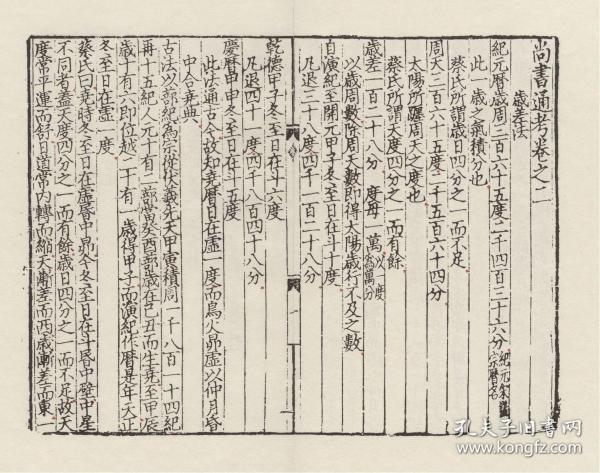 尚書通考卷之二
歲差法
紀元曆歲周三百六十五度二千四百三十六分紀元宋曆名
此一歲之氣積分也
蔡氏所謂歲日四分之一而不足
周天三百六十五度二千五百六十四分
太陽所躔周天之度也
蔡氏所謂天度四分之一而有餘
歲差一百二十八分 度母一萬以一度為萬分
以歲周數除周天數即得太陽歲行不及之數
自演紀至開元甲子冬至日在斗十度
凡退三十八度四千一百二十八分
乾德甲子冬至日在斗六度
凡退四十一度四千八百四十八分
慶曆甲申冬至日在斗五度
此法通古今故知堯曆日在虛一度而鳥火昴虛以仲月昏
中合堯典
古法以蔀紀為宗從伏羲先天甲寅積周一千八百一十四紀
再十五紀人元十有二蔀當癸酉蔀歲在己丑而生堯至甲辰
歲十有六即位越二十有一歲得甲子而演紀作曆是年天正
冬至日在虛一度
蔡氏曰堯時冬至日在虛昏中昴今冬至日在斗昏中壁中星
不同者蓋天度四分之一而有餘歲日四分之一而不足故天
度常平運而舒日道常內轉而縮天漸差而西歲漸差而東一
孔夫子旧书网
www.kongfz.com